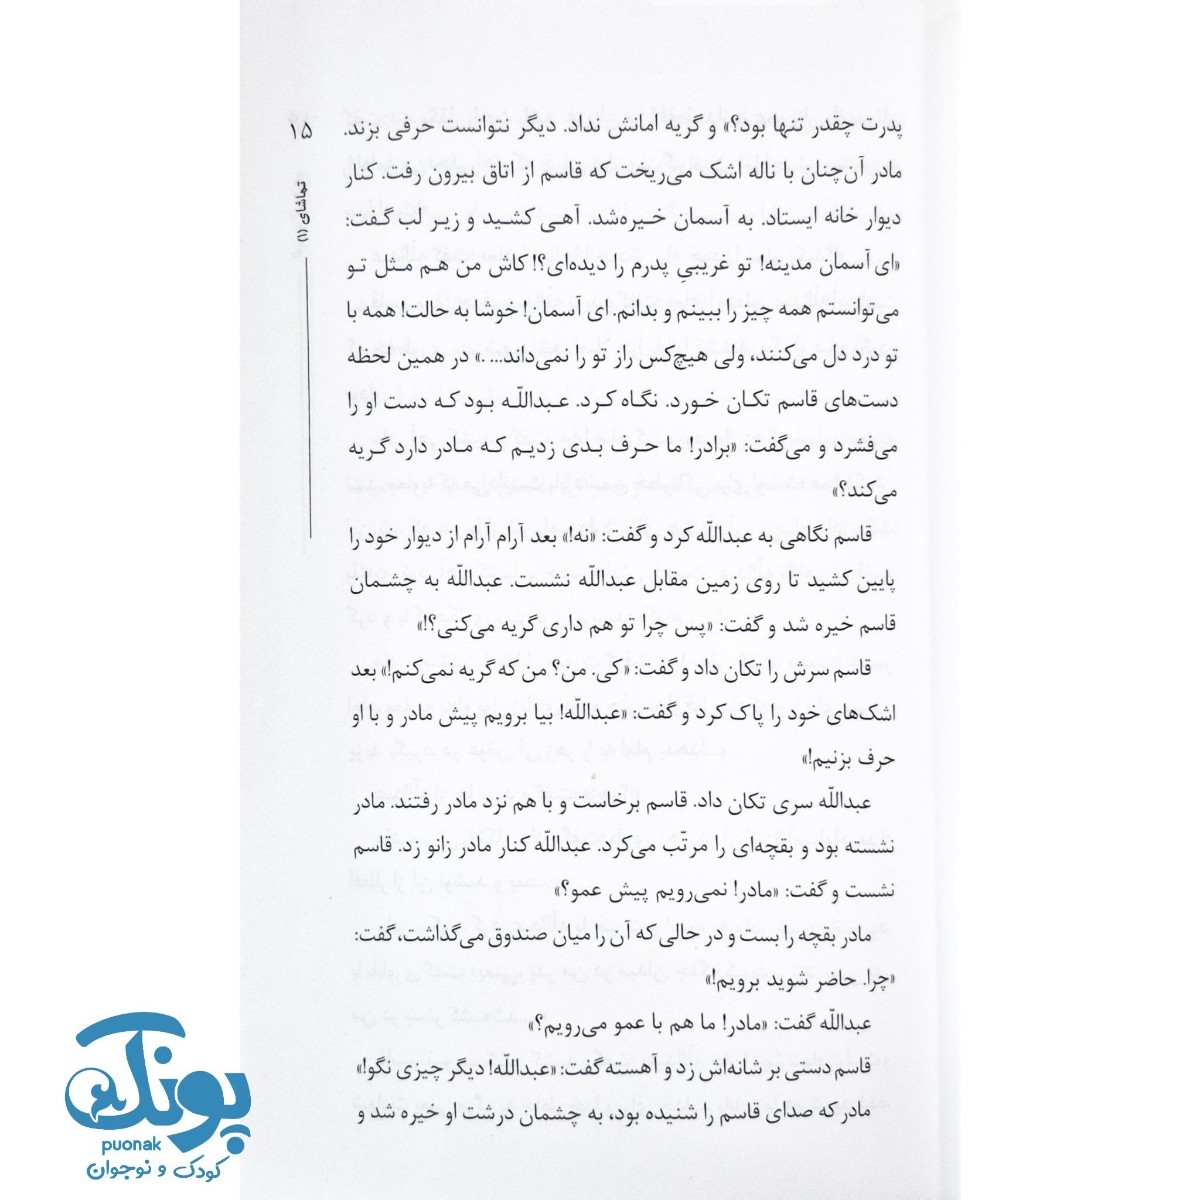 پدرت چقدر تنها بود؟» و گریه امانش نداد. دیگر نتوانست حرفی بزند.
مادر آن‌چنان با ناله اشک می‌ریخت که قاسم از اتاق بیرون رفت. کنار
دیوار خانه ایستاد. به آسمان خیره‌شد. آهی کشید و زیر لب گفت:
«ای آسمان مدینه! تو غریبیِ پدرم را دیده‌ای؟! کاش من هم مثل تو
می‌توانستم همه چیز را ببینم و بدانم. ای آسمان! خوشا به حالت! همه با
تو درد دل می‌کنند، ولی هیچ‌کس راز تو را نمی‌داند... .» در همین لحظه
دست‌های قاسم تکان خورد. نگاه کرد. عبداللّه بود که دست او را
می‌فشرد و می‌گفت: «برادر! ما حرف بدی زدیم که مادر دارد گریه
می‌کند؟»
قاسم نگاهی به عبداللّه کرد و گفت: «نه!» بعد آرام آرام از دیوار خود را
پایین کشید تا روی زمین مقابل عبداللّه نشست. عبداللّه به چشمان
قاسم خیره شد و گفت: «پس چرا تو هم داری گریه می‌کنی؟!»
قاسم سرش را تکان داد و گفت: «کی. من؟ من که گریه نمی‌کنم!» بعد
اشک‌های خود را پاک کرد و گفت: «عبداللّه! بیا برویم پیش مادر و با او
حرف بزنیم!»
عبداللّه سری تکان داد. قاسم برخاست و با هم نزد مادر رفتند. مادر
نشسته بود و بقچه‌ای را مرتّب می‌کرد. عبداللّه کنار مادر زانو زد. قاسم
نشست و گفت: «مادر! نمی‌رویم پیش عمو؟»
مادر بقچه را بست و در حالی که آن را میان صندوق می‌گذاشت، گفت:
«چرا. حاضر شوید برویم!»
عبداللّه گفت: «مادر! ما هم با عمو می‌رویم؟»
قاسم دستی بر شانه‌اش زد و آهسته گفت: «عبداللّه! دیگر چیزی نگو!»
مادر که صدای قاسم را شنیده بود، به چشمان درشت او خیره شد و
۱۵
تماشای (۱)
پونک
puonak
کودک و نوجوان